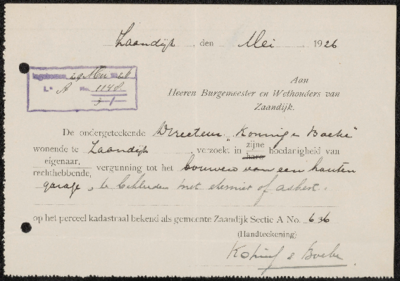 Zaandijk, den Mei 1926
Aan
Heeren Burgemeester en Wethouders van
Zaandijk.
La A 1148
De ondergeteekende Directeur "Koning & Boeke"
wonende te Zaandijk, verzoekt in zijne hoedanigheid van
haro
eigenaar,
rechthebbende, vergunning tot het bouwen van een houten
garage, te bekleeden met eterniet of asbest.
op het perceel kadastraal bekend als gemeente Zaandijk Sectie A No. 636
(Handteekening)
Koning & Boeke